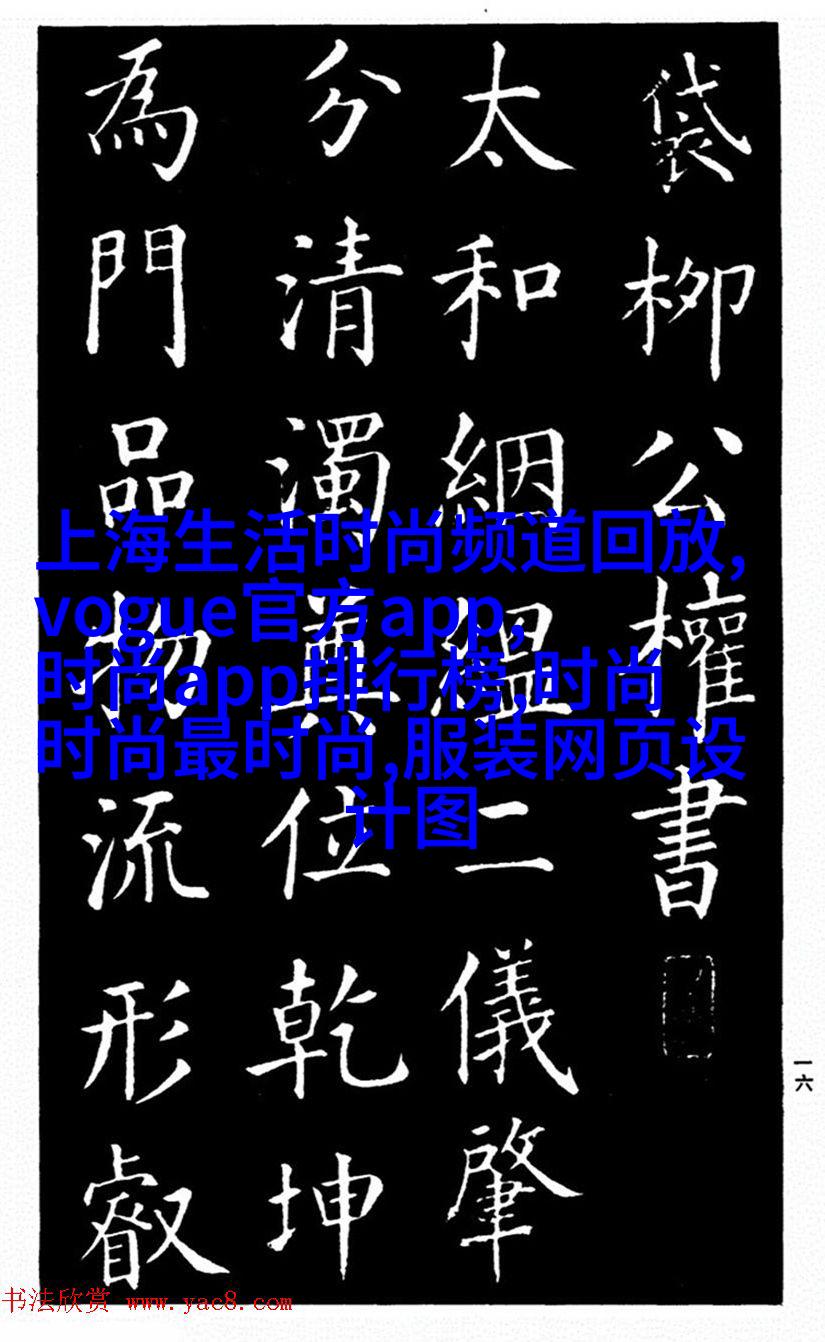 袋柳公權書
太和絪縕二儀肇
分清濁奠位乾坤
為門品物流形叡
上海生活时尚频道回放,
vogue官方app,
时尚app排行榜,时尚
时尚最时尚,服装网页设
计图
一六
书法欣赏 www.yac8.com